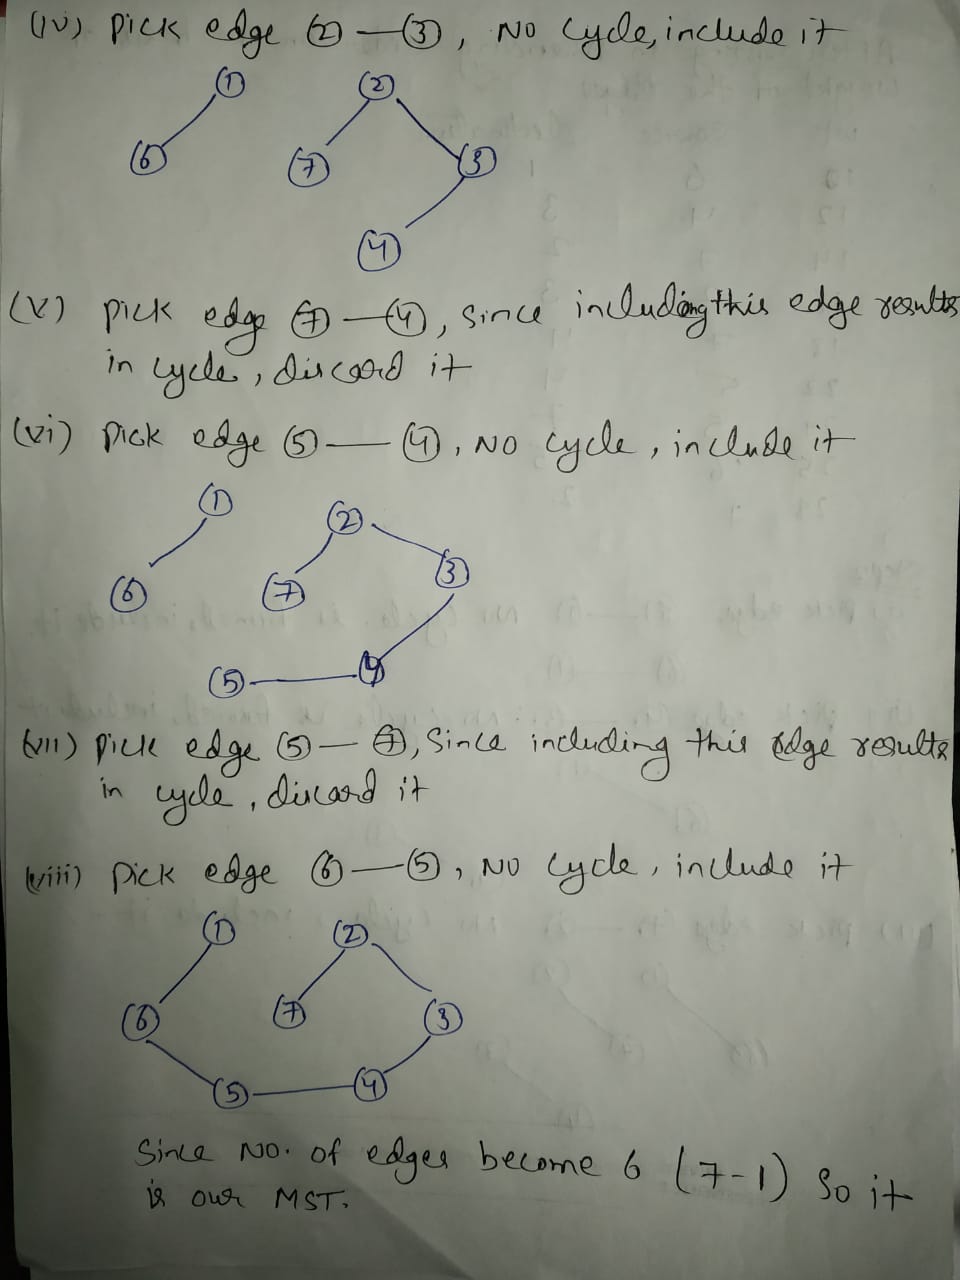 (iv) pick edge ② — ③, No cycle, include it
① ②
⑥ ⑦ ③
④
(v) pick edge ⑦ — ④, since including this edge results
in cycle, discard it
(vi) pick edge ⑤ — ④, No cycle, include it
① ②
⑥ ⑦ ③
⑤ ④
(vii) pick edge ⑤ — ⑦, since including this edge results
in cycle, discard it
(viii) pick edge ⑥ — ⑤, No cycle, include it
① ②
⑥ ⑦ ③
⑤ ④
Since No. of edges become 6 (7-1) So it
is our MST.